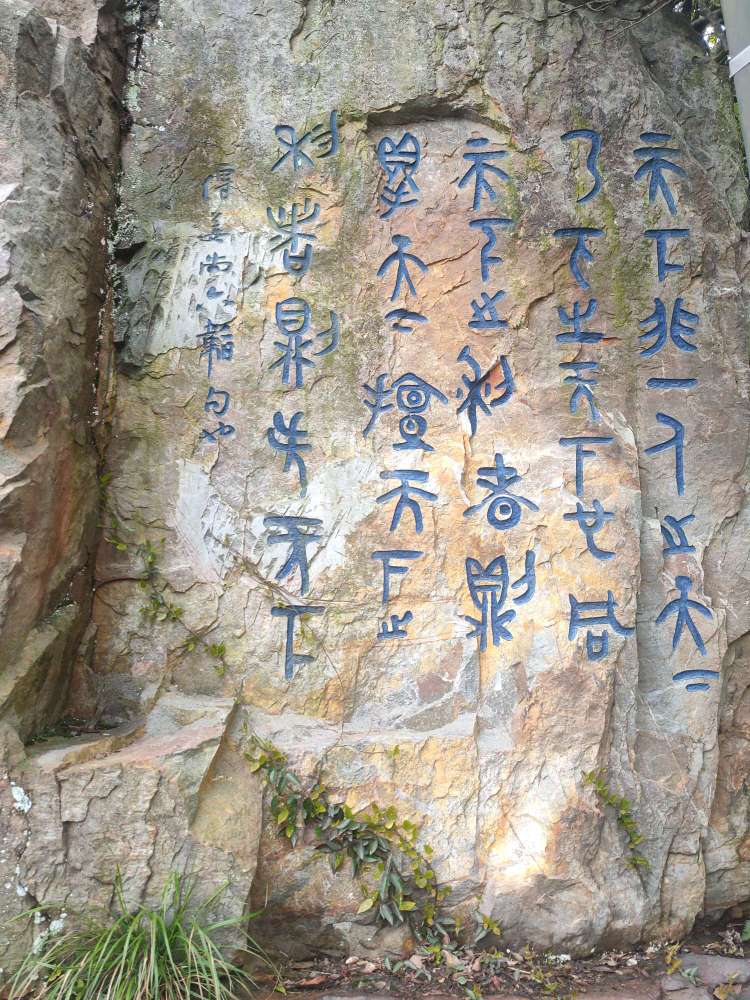 天下非一人之天下
乃天下之天下也同
天下之利者則
得天下擅天下之
利者則失天下
姜尚公韜句也